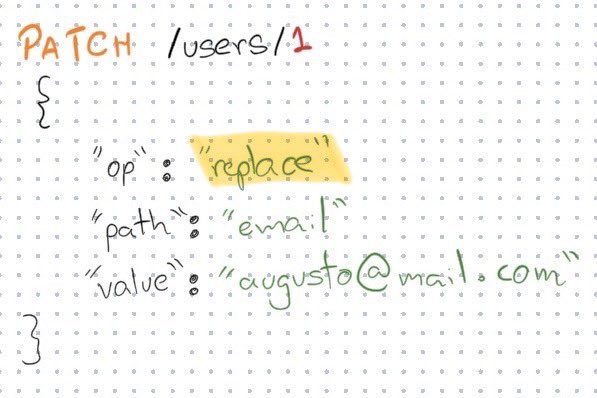 PATCH /users/1
{
"op": "replace"
"path": "email"
"value": "augusto@mail.com"
}